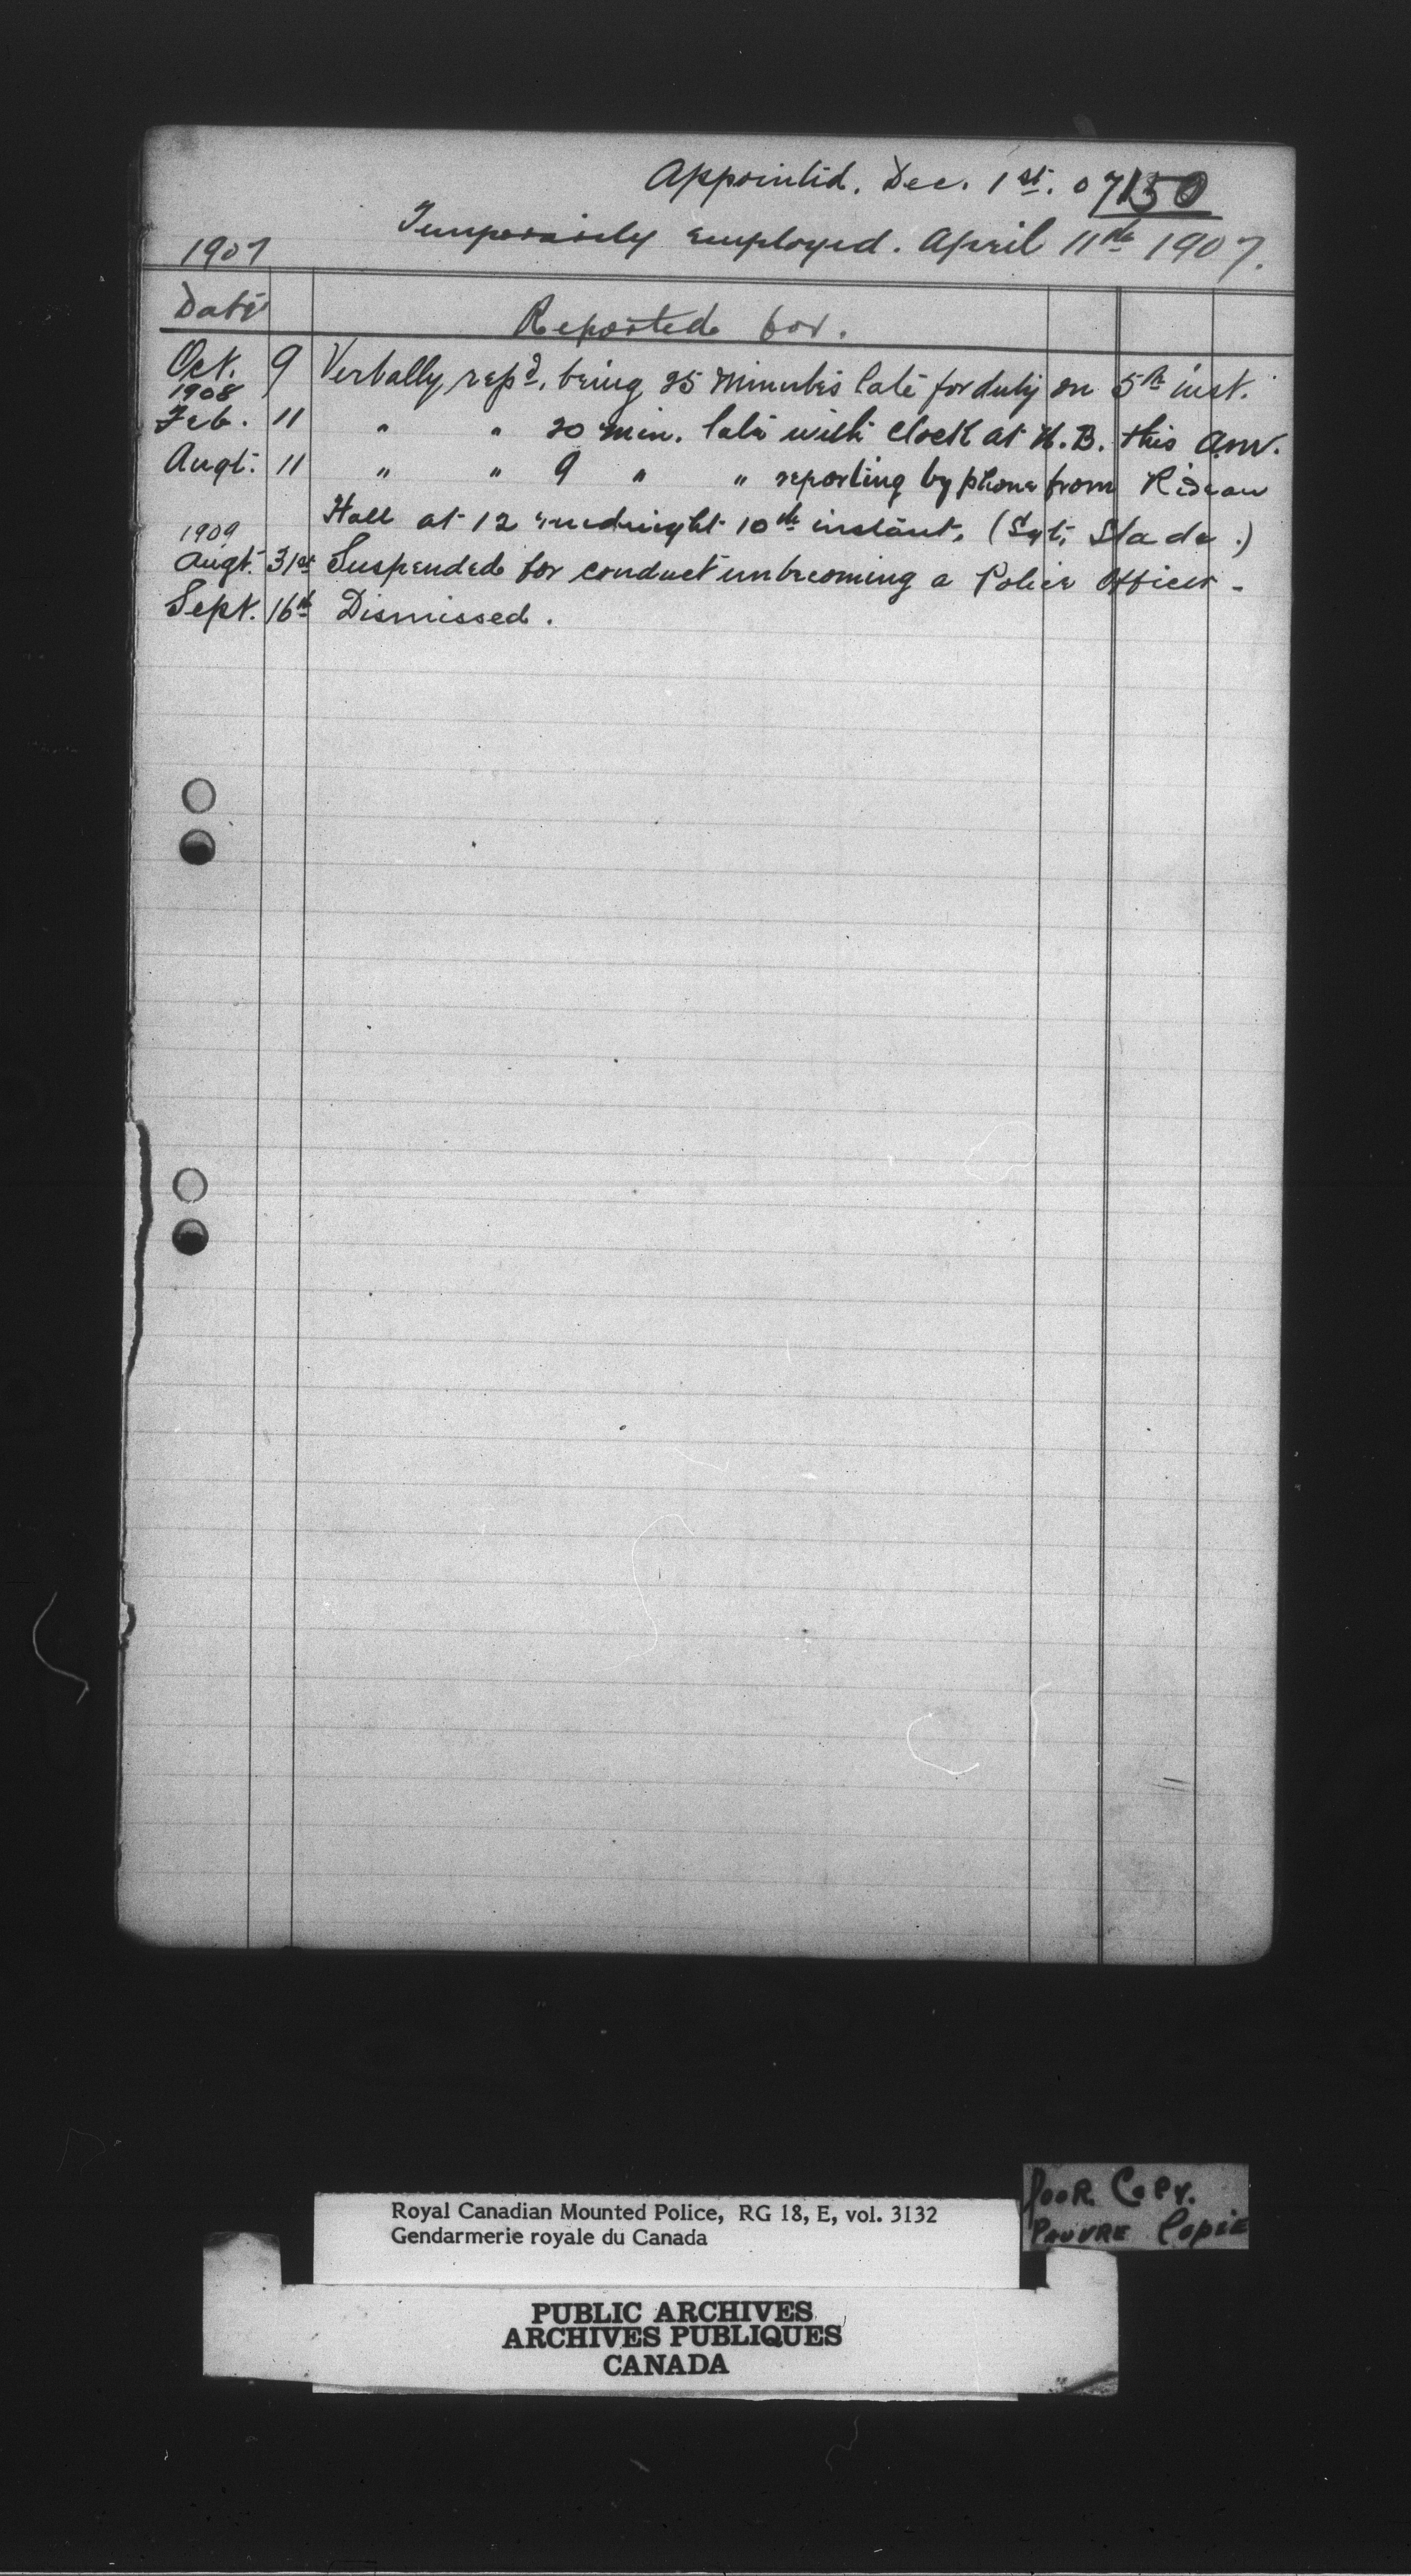 Appointed. Dec. 1st. 07 150
Temporarily employed. April 11th 1907.
1907
Date Reported for.
Oct. 9 Verbally repd. being 25 minutes late for duty on 5th inst.
1908
Feb. 11 " " 20 min. late with clock at W.B. this a.m.
Augt. 11 " " 9 " " reporting by phone from Rideau
Hall at 12 midnight 10th instant. (Sgt. Slade.)
1909
Augt. 31st Suspended for conduct unbecoming a Police Officer -
Sept. 16th Dismissed.
Royal Canadian Mounted Police, RG 18, E, vol. 3132
Gendarmerie royale du Canada
POOR COPY.
PAUVRE COPIE
PUBLIC ARCHIVES
ARCHIVES PUBLIQUES
CANADA